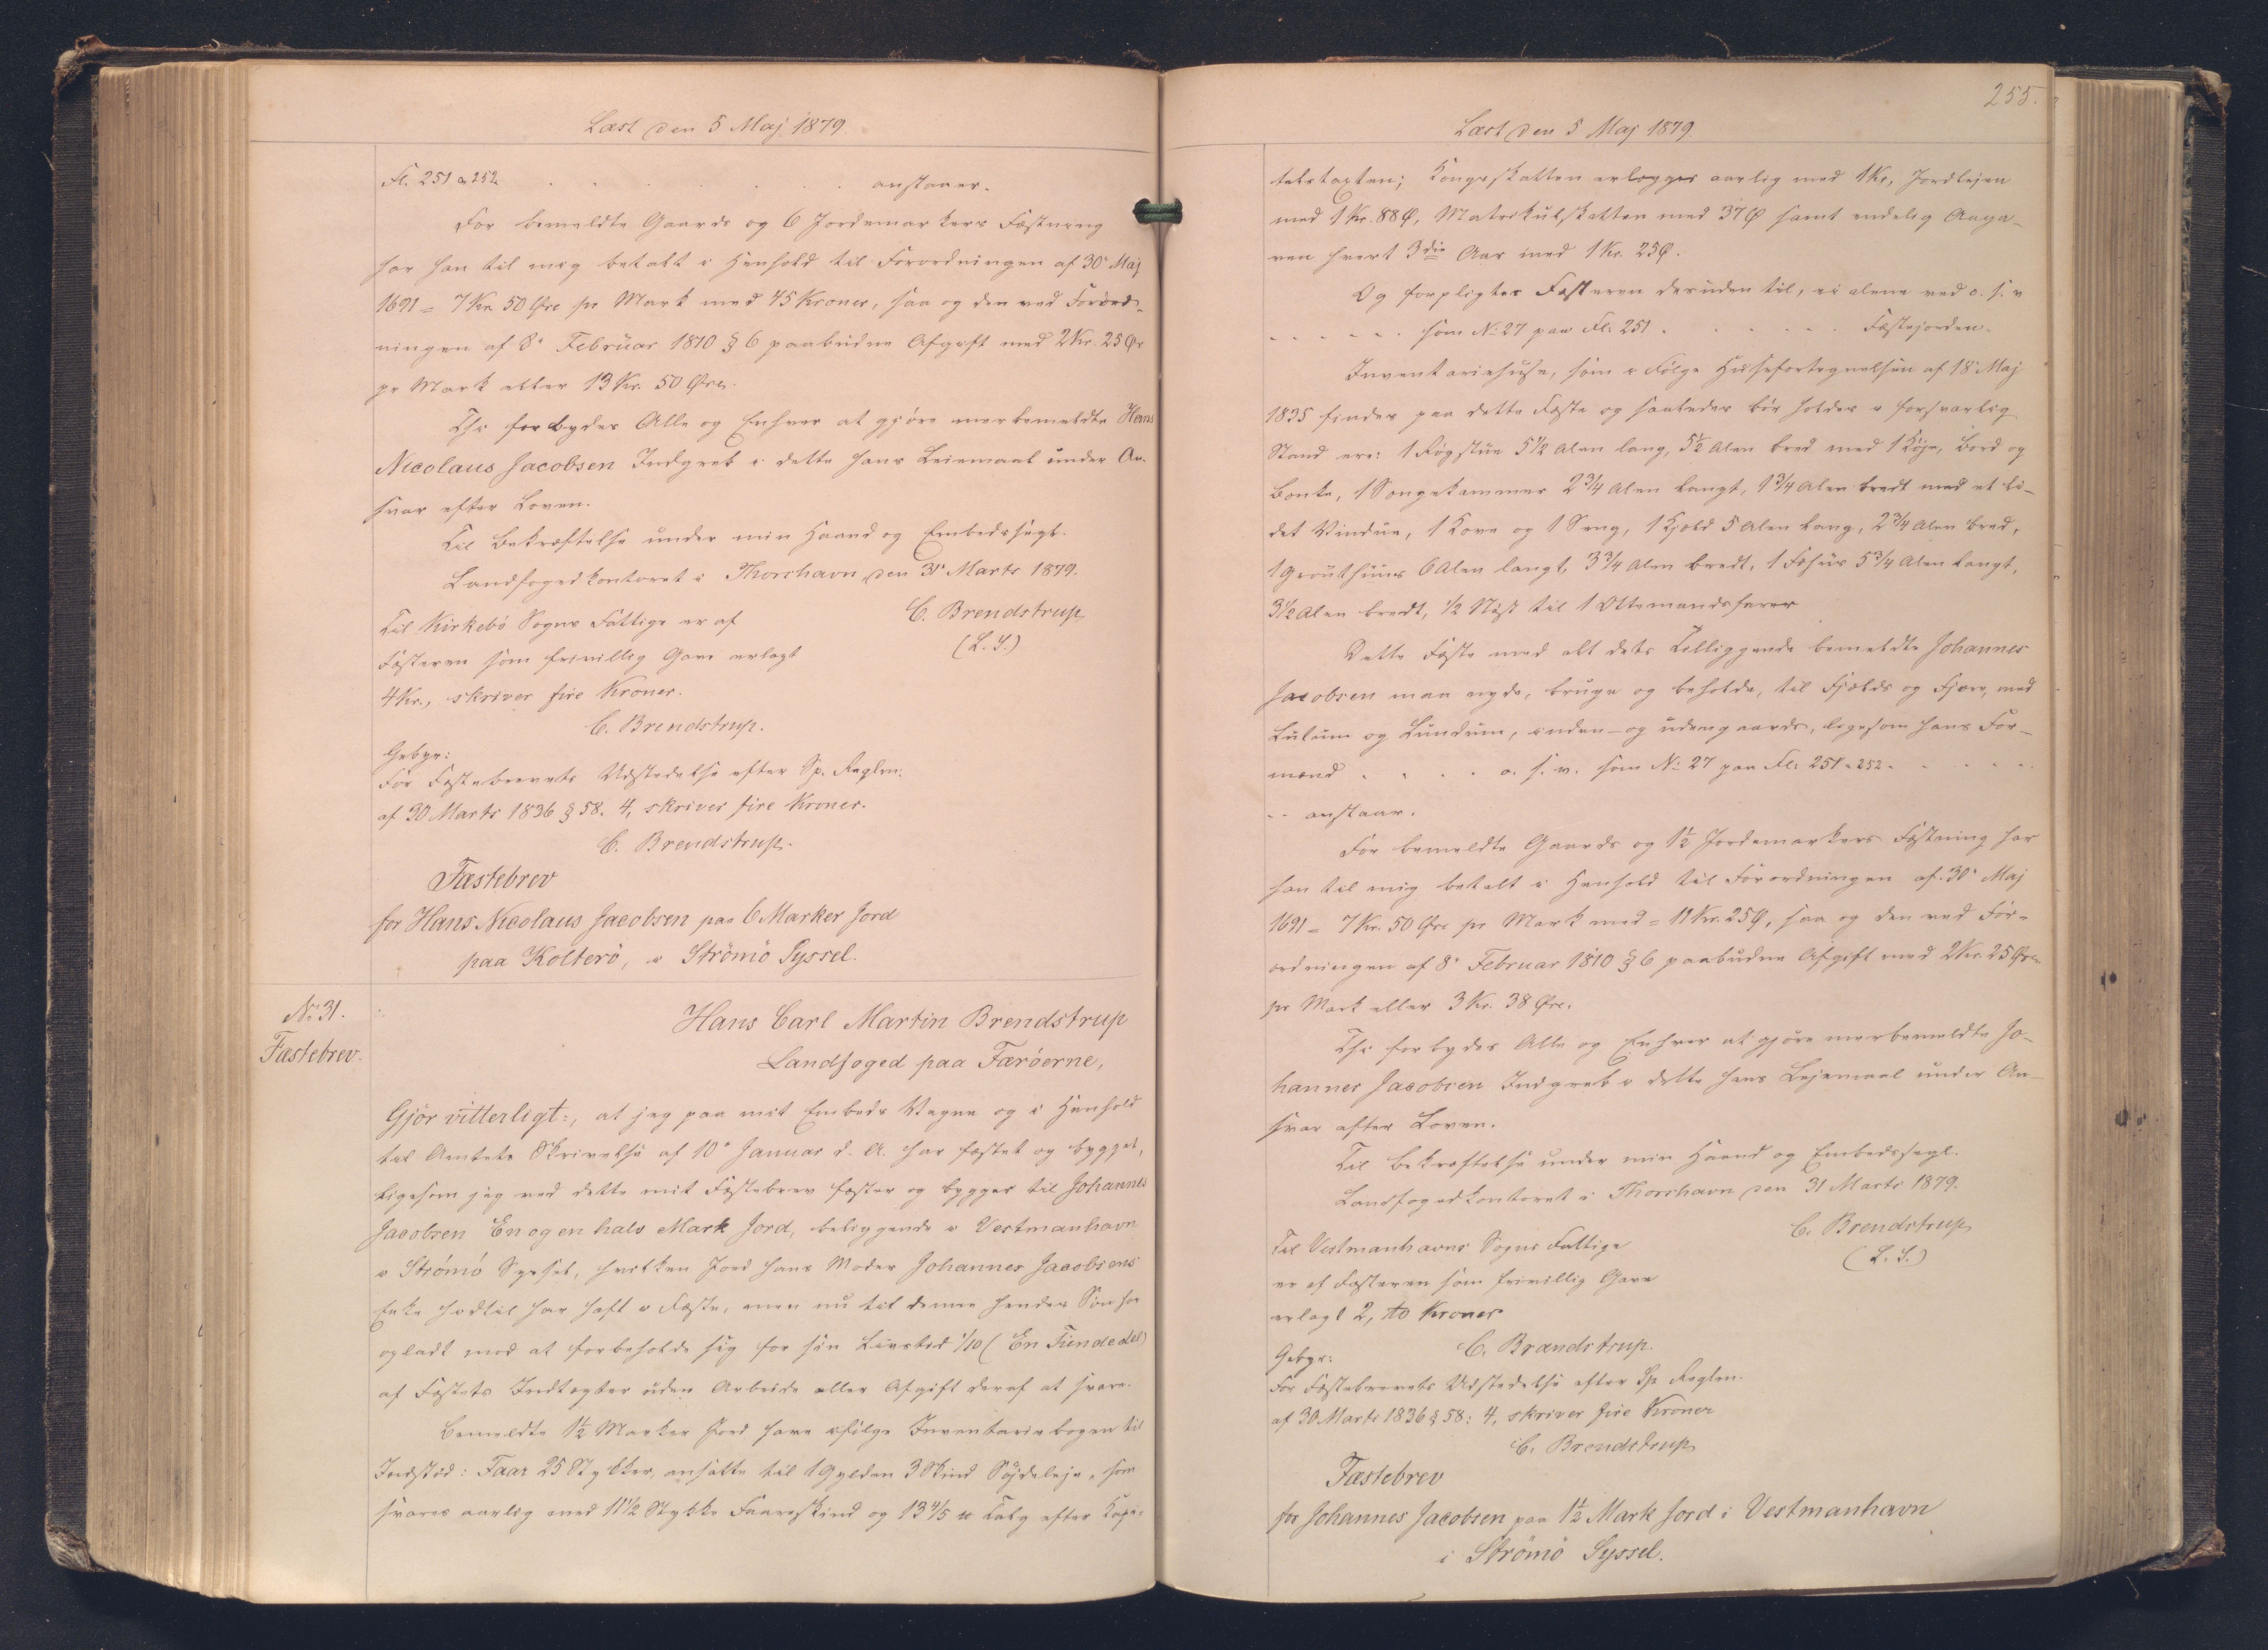 Læst den 5 Maj 1879.
Fl. 251 a 252 . . . . . . . . anstaaer.
For bemeldte Gaards og 6 Jordemarkers Fæstning
har han til mig betalt i Henhold til Forordningen af 30' Maj
1691 = 7 Kr. 50 Øre pr Mark med 45 Kroner, saa og den ved Forord-
ningen af 8' Februar 1810 § 6 paabudne Afgift med 2 Kr. 25 Ør
pr Mark eller 13 Kr. 50 Øre.
Thi forbydes Alle og Enhver at gjöre merbemeldte Hans
Nicolaus Jacobsen Indgreb i dette hans Leiemaal under An-
svar efter Loven.
Til Bekræftelse under min Haand og Embedssegl.
Landfogedkontoret i Thorshavn, den 31' Marts 1879.
C. Brendstrup
(L. S.)
Til Kirkebö Sogns Fattige er af
Fæsteren som frivillig Gave erlagt
4 Kr., skriver fire Kroner.
C. Brendstrup.
Gebyr:
For Fæstebrevets Udstedelse efter Sp. Reglm.
af 30 Marts 1836 § 58. 4, skriver fire Kroner.
C. Brendstrup.
Fæstebrev
for Hans Nicolaus Jacobsen paa 6 Marker Jord
paa Kolterö, i Strömö Syssel.
No 31.
Fæstebrev.
Hans Carl Martin Brendstrup
Landfoged paa Færöerne,
Gjör vitterligt:, at jeg paa mit Embeds Vegne og i Henhold
til Amtets Skrivelse af 10' Januar d. A. har fæstet og bygget,
ligesom jeg ved dette mit Fæstebrev fæster og bygger til Johannes
Jacobsen En og en halv Mark Jord, beliggende i Vestmanhavn
i Strömö Syssel, hvilken Jord hans Moder Johannes Jacobsens
Enke hidtil har haft i Fæste, men nu til denne hendes Sön har
opladt mod at forbeholde sig for sin Livstid 1/10 (En Tiendedel)
af Fæstets Indtægter uden Arbeide eller Afgift deraf at svare.
Bemeldte 1½ Marker Jord have ifölge Inventariebogen til
Indstöd: Faar 25 Stykker, ansatte til 1 Gylden 3 Skind Söjdeleje, som
svares aarlig med 11½ Stykke Faareskind og 13 4/5 ℔ Talg efter Kapi-
255.
Læst den 5 Maj 1879.
telstaxten; Kongsskatten erlægges aarlig med 1 Kr, Jordlejen
med 1 Kr. 88 Ø, Matrikulskatten med 37 Ø samt endelig Anga-
ven hvert 3die Aar med 1 Kr. 25 Ø.
Og forpligtes Fæsteren desuden til, ei alene ved o. s. v
. . . . . som No 27 paa Fl: 251 . . . . . . Fæstejorden.
Inventariehuse, som i Fölge Husefortegnelsen af 18' Maj
1835 findes paa dette Fæste og saaledes bör holdes i forsvarlig
Stand ere: 1 Rögstue 5½ Alen lang, 5½ Alen bred med 1 Köje, Bord og
Bænke, 1 Sengekammer 2¾ Alen langt, 1¾ Alen bredt med et li-
det Vindue, 1 Kove og 1 Seng, 1 Kjæld 5 Alen lang, 2¾ Alen bred,
1 Hjaldhuus 6 Alen langt, 3¾ Alen bredt, 1 Fæhus 5¾ Alen langt,
3½ Alen bredt, ½ Nöst til 1 Ottemandsfarer
Dette Fæste med alt dets Tilliggende bemeldte Johannes
Jacobsen maa nyde, bruge og beholde, til Fjælds og Fjære, med
Lutum og Lundum, inden- og udengaards, ligesom hans For-
mænd . . . . o. s. v. som No 27 paa Fl: 251 a 252 . . . . .
. . anstaar.
For bemeldte Gaards og 1½ Jordemarkers Fæstning har
han til mig betalt i Henhold til Forordningen af 30' Maj
1691 = 7 Kr. 50 Øre pr Mark med = 11 Kr. 25 Ø, saa og den ved For-
ordningen af 8' Februar 1810 § 6 paabudne Afgift med 2 Kr. 25 Øre.
pr Mark eller 3 Kr. 38 Øre.
Thi forbydes Alle og Enhver at gjöre merbemeldte Jo-
hannes Jacobsen Indgreb i dette hans Lejemaal under An-
svar efter Loven.
Til Bekræftelse under min Haand og Embedssegl.
Landfogedkontoret i Thorshavn den 31 Marts 1879.
C. Brendstrup
(L. S.)
Til Vestmanhavns Sogns Fattige
er af Fæsteren som frivillig Gave
erlagt 2, to Kroner
C. Brendstrup.
Gebyr:
For Fæstebrevets Udstedelse efter Sp Reglm.
af 30 Marts 1836 § 58: 4, skriver fire Kroner
C. Brendstrup
Fæstebrev
for Johannes Jacobsen paa 1½ Mark Jord i Vestmanhavn
i Strömö Syssel.